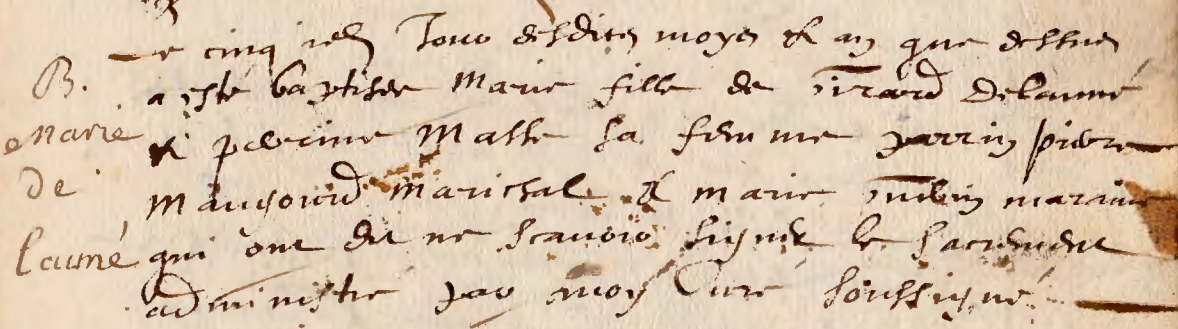 B.
Marie
De
laumé
Le cinq iesme Jour desdites moys & an que dessus
a este baptisee Marie fille de Girard Delaumé
& perrine Masse sa femme parrin pierre
Maugourd marichal & marie marrine
qui ont dit ne scavoir signer le sacrement
administre par moy Curé soussigné